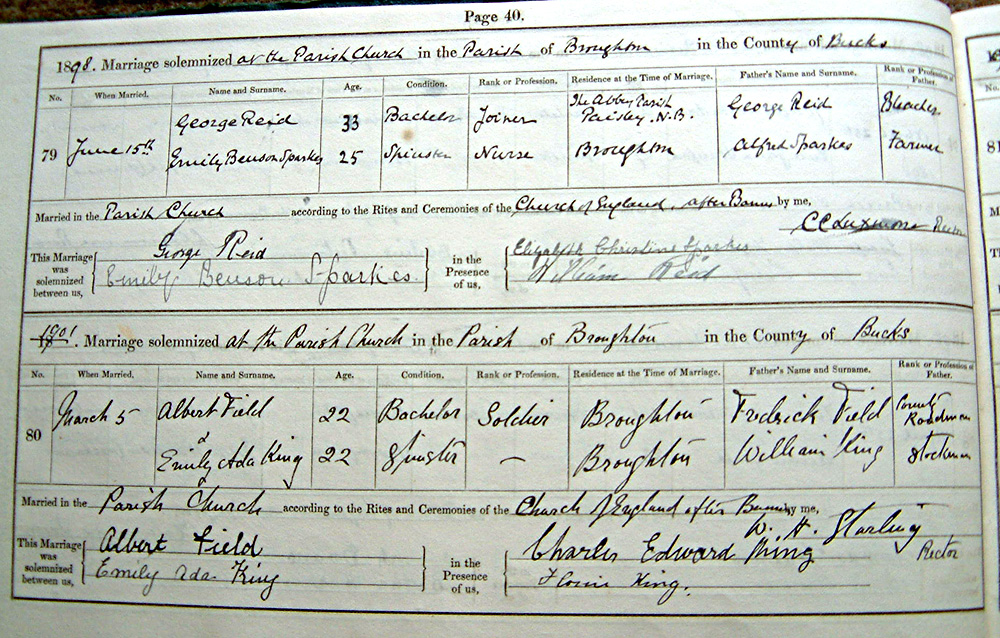 Page 40.
1898. Marriage solemnized at the Parish Church in the Parish of Broughton in the County of Bucks
No. When Married. Name and Surname. Age. Condition. Rank or Profession. Residence at the Time of Marriage. Father's Name and Surname. Rank or Profession of Father.
79 June 15th George Reid 33 Bachelor Joiner The Abbey Parish Paisley. N.B. George Reid Bleacher
Emily Benson Sparkes 25 Spinster Nurse Broughton Alfred Sparkes Farmer
Married in the Parish Church according to the Rites and Ceremonies of the Church of England, after Banns by me,
C C Luxmoore Rector
This Marriage was solemnized between us, George Reid
Emily Benson Sparkes.
in the Presence of us, Elizabeth Christine Sparkes
William Reid
1901. Marriage solemnized at the Parish Church in the Parish of Broughton in the County of Bucks
No. When Married. Name and Surname. Age. Condition. Rank or Profession. Residence at the Time of Marriage. Father's Name and Surname. Rank or Profession of Father.
80 March 5 Albert Field 22 Bachelor Soldier Broughton Fredrick Field County Roadman
& Emily Ada King 22 Spinster — Broughton William King Stockman
Married in the Parish Church according to the Rites and Ceremonies of the Church of England after Banns by me,
W. H. Starling Rector
This Marriage was solemnized between us, Albert Field
Emily Ada King
in the Presence of us, Charles Edward King
King.
No.
81